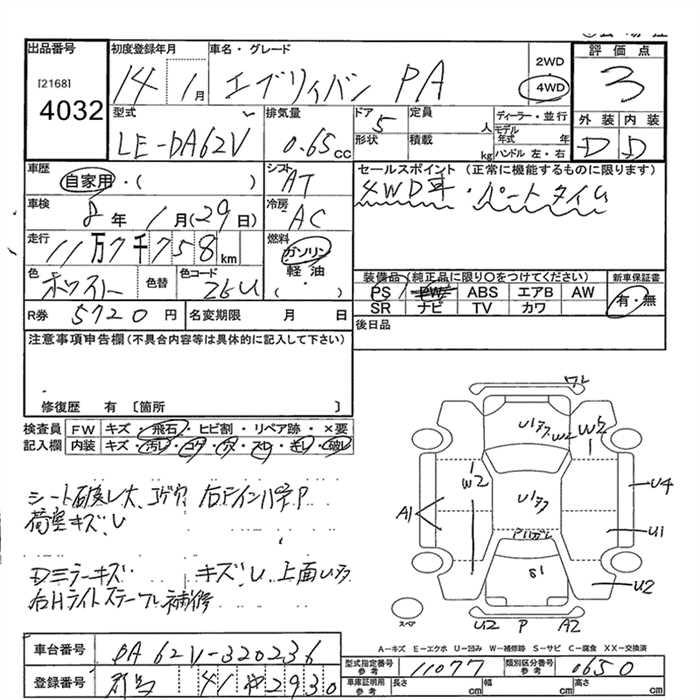 出品番号
[2168]
4032
初度登録年月
14 1月
車名・グレード
エブリイバン PA
2WD
4WD
評価点
3
型式
LE-DA62V
排気量
0.65 cc
ドア 5
形状
定員
人
積載
kg
ディーラー・並行
モデル年式 年
ハンドル 左・右
外装 内装
D D
車歴
自家用・( )
車検
8年 1月(29日)
走行
11万7千758km
色
ホワイト
色替
色コード
26U
シフト
AT
冷房
AC
燃料
ガソリン
軽油
( ・ )
セールスポイント (正常に機能するものに限ります)
4WD車・パートタイム
装備品(純正品に限り○をつけてください)
新車保証書
PS PW ABS エアB AW
SR ナビ TV カワ
有・無
R券 5720 円
名変期限 月 日
後日品
注意事項申告欄(不具合内容等は具体的に記入して下さい)
修復歴 有〔箇所 〕
検査員 FW キズ・飛石・ヒビ割・リペア跡・×要
記入欄 内装 キズ・汚レ・コゲ・穴・スレ・キレ・破レ
シート破レ大、コゲ穴
荷室キズ、U
Dミラーキズ キズ、U
右Hライトステー 補修
ワレ
U1
W2
W2
U1
A1
U4
U1
S1
U2
U2 P A2
スペア
A－キズ E－エクボ U－凹み W－補修跡 S－サビ C－腐食 XX－交換済
車台番号 DA62V-320236
登録番号 41 2930
型式指定番号 参考 11077
類別区分番号 参考 0650
車庫証明用 参考 長さ cm 幅 cm 高さ cm